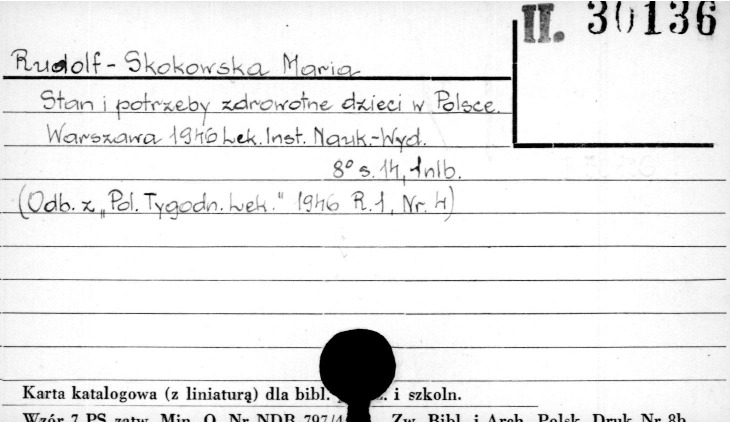 II. 30136
Rudolf-Skokowska Maria
Stan i potrzeby zdrowotne dzieci w Polsce.
Warszawa 1946 Lek. Inst. Nauk.-Wyd.
8° s. 14, 1nlb.
(Odb. z „Pol. Tygodn. Lek." 1946 R.1, Nr. 4)
Karta katalogowa (z liniaturą) dla bibl. i szkoln.
Wzór 7 PS zatw. Min. O. Nr NDB 797/4 Zw. Bibl. i Arch. Polsk. Druk Nr 8b